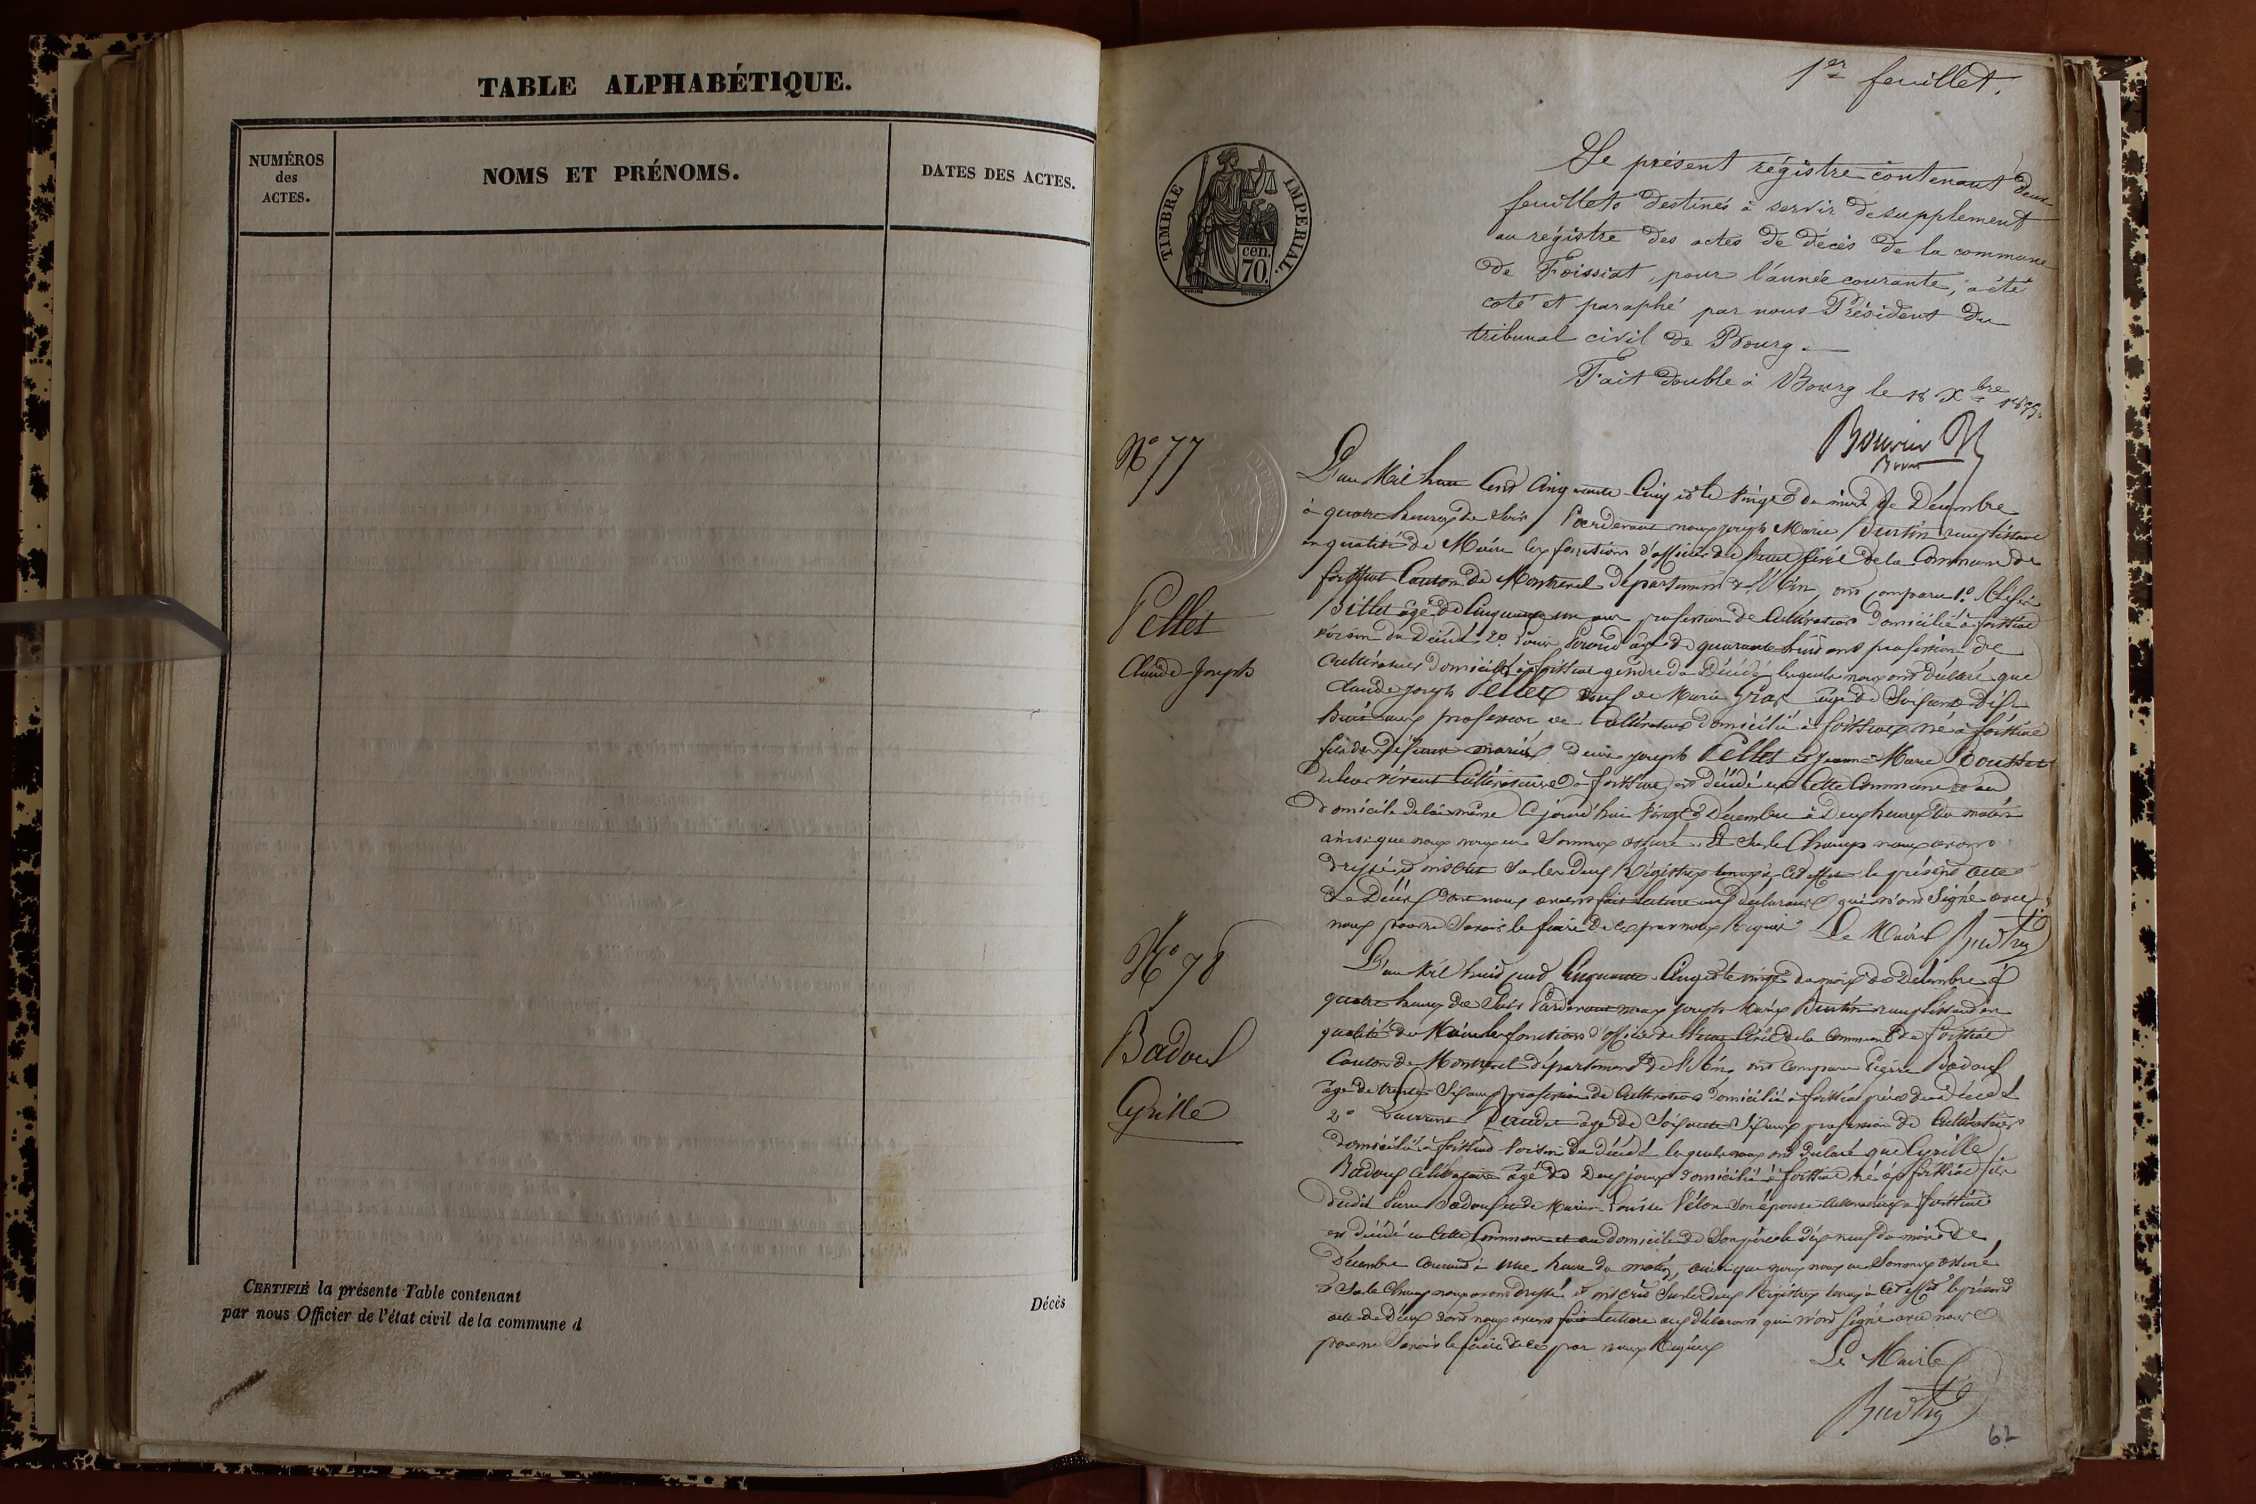 TABLE ALPHABÉTIQUE.
NUMÉROS
des
ACTES.
NOMS ET PRÉNOMS.
DATES DES ACTES.
CERTIFIÉ la présente Table contenant
par nous Officier de l'état civil de la commune d
Décès
1er feuillet.
TIMBRE IMPERIAL.
cen.
70.
Le présent régistre contenant deux
feuillets destinés à servir de supplement
au régistre des actes de décès de la commune
de Foissiat, pour l'année courante, a été
coté et paraphé par nous Président du
tribunal civil de Bourg.
Fait double à Bourg le 18 Xbre
N° 77
Pellet
Claude-Joseph
L'an Mil huit Cent Cinquante Cinq et le Vingt du mois de Décembre
à quatre heures du Soir, Pardevant nous Joseph Marie remplissant
en qualité de Maire les fonctions d'officier de l'état Civil de la Commune de
foissiat Canton de Montrevel département de l'Ain, ont comparu 1°
agé de Cinquante un ans profession de Cultivateur domicilié à foissiat
voisin du Décédé 2° Louis agé de quarante huit ans profession de
Cultivateur domicilié à foissiat gendre du Décédé lesquels nous ont déclaré que
Claude Joseph Pellet veuf de Marie agé de Soixante Dix
huit ans profession de Cultivateur domicilié à foissiat né à foissiat
fils de défunts mariés Joseph Pellet et Jeanne Marie
de leur vivant Cultivateurs à foissiat est décédé en Cette Commune et au
domicile de lui même Cejourd'hui Vingt Décembre à Deux heures du matin
ainsi que nous nous en Sommes assuré. Et Sur le Champ nous avons
dressé et inscrit Sur les deux Régistres tenus à Cet effet le présent acte
de Décès dont nous avons fait lecture aux déclarants qui n'ont Signé avec
nous pour ne Savoir le faire de ce par nous Requis Le Maire
N° 78
Badoux
Cyrille
L'an Mil huit cent Cinquante Cinq et le vingt du mois de Décembre à
quatre heures du Soir Pardevant nous Joseph Marie remplissant en
qualité de Maire les fonctions d'officier de l'état Civil de la Commune de foissiat
Canton de Montrevel département de l'Ain, ont comparu Pierre Badoux
agé de trente Six ans profession de Cultivateur domicilié à foissiat père du décédé
2° Laurent agé de Soixante Six ans profession de Cultivateur
domicilié à foissiat Voisin du décédé lesquels nous ont déclaré que Cyrille
Badoux Célibataire agé de Deux jours domicilié à foissiat né à foissiat fils
dudit Pierre Badoux et de Marie Louise son épouse Cultivateurs à foissiat
est décédé en Cette Commune et au domicile de Son père le dix neuf du mois de
Décembre Courant à une heure du matin, ainsi que nous nous en Sommes assuré
et Sur le Champ nous avons dressé et inscrit Sur les deux Régistres tenus à Cet effet le présent
acte de Décès dont nous avons fait lecture aux déclarants qui n'ont Signé avec nous
pour ne Savoir le faire de ce par nous Requis
Le Maire
62